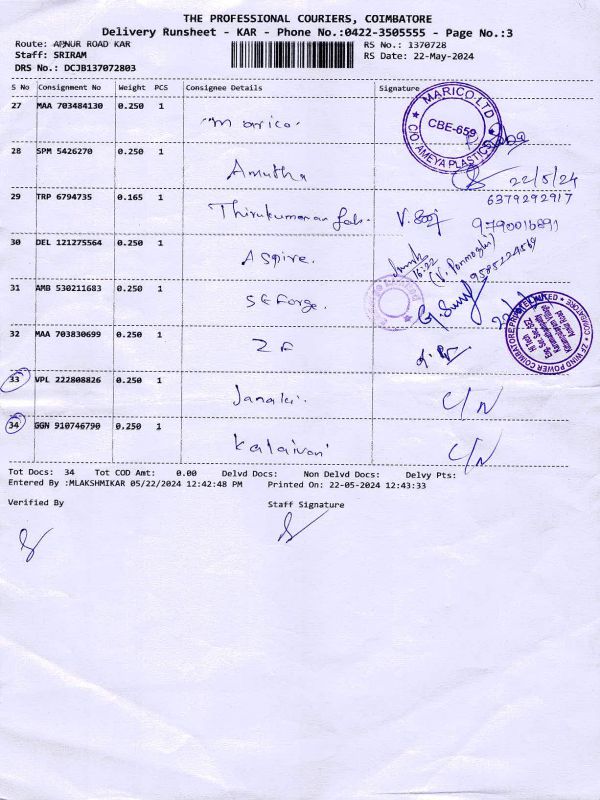 THE PROFESSIONAL COURIERS, COIMBATORE
Delivery Runsheet - KAR - Phone No.:0422-3505555 - Page No.:3
Route: ARNUR ROAD KAR
RS No.: 1370728
Staff: SRIRAM
RS Date: 22-May-2024
DRS No.: DCJB137072803
S No Consignment No Weight PCS Consignee Details Signature
27 MAA 703484130 0.250 1 "Marico"
MARICO LTD
CBE-659
C/O AMEYA PLASTICS
28 SPM 5426270 0.250 1 Amutha 22/5/24
6379292917
29 TRP 6794735 0.165 1 Thirukumaran 9790016891
30 DEL 121275564 0.250 1 Aspire.
16:22
(V. Ponmozhi)
9585224569
31 AMB 530211683 0.250 1 SE Forge.
32 MAA 703830699 0.250 1 ZF
ZF WIND POWER COIMBATORE PRIVATE LIMITED
COIMBATORE
33 VPL 222808826 0.250 1 Janaki. C/N
34 GGN 910746790 0.250 1 Kalaivani C/N
Tot Docs: 34 Tot COD Amt: 0.00 Delvd Docs: Non Delvd Docs: Delvy Pts:
Entered By :MLAKSHMIKAR 05/22/2024 12:42:48 PM Printed On: 22-05-2024 12:43:33
Verified By
Staff Signature